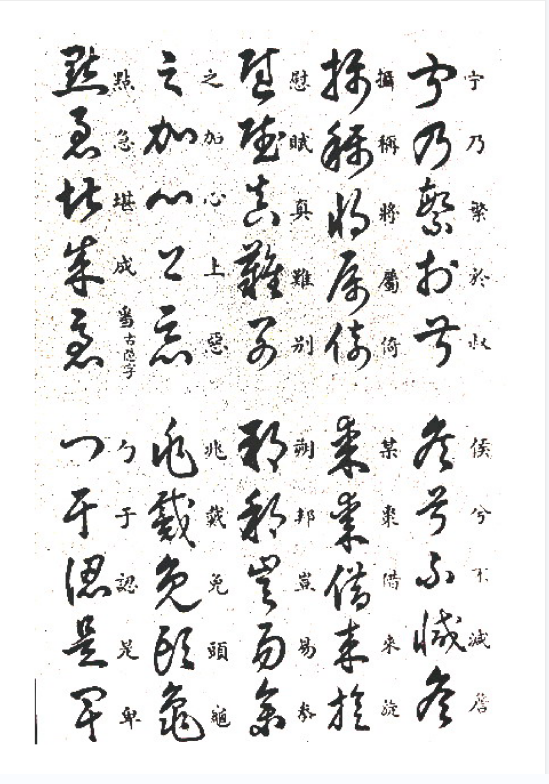 宁乃繁於叔
侯兮不減詹
攝稱將屬倚
某棗借來旋
慰賦真難别
朔邦豈易參
之加心上惡
兆戴免頭龜
點急堪成
勹于認是卑